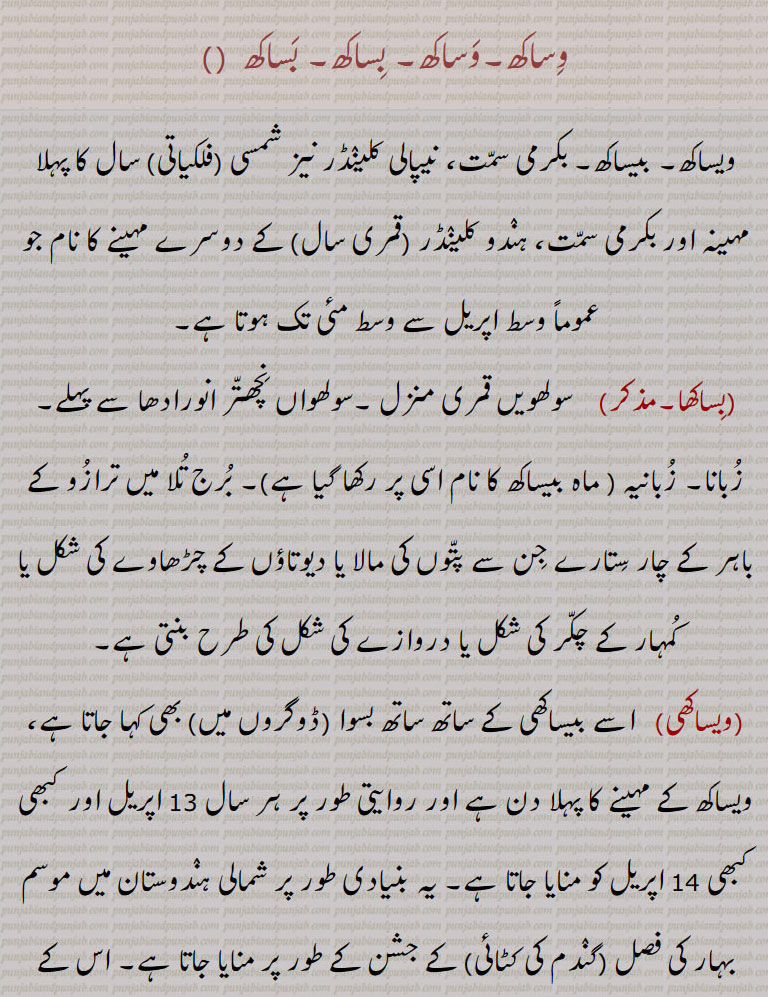 وِساکھ۔ وَساکھ۔ بِساکھ۔ بَساکھ ()
ویساکھ۔ بیساکھ۔ بکرمی سمّت، نیپالی کلینْڈر نیز شمسی (فلکیاتی) سال کا پہلا
مہینہ اور بکرمی سمّت، ہنْدو کلینْڈر (قمری سال) کے دوسرے مہینے کا نام جو
عموماً وسط اپریل سے وسط مئی تک ہوتا ہے۔
(بِساکھا۔مذکر) سولھویں قمری منزل ۔سولھواں نچھتّر انورادھا سے پہلے۔
زُبانا۔ زُبانیہ ( ماہ بیساکھ کا نام اسی پر رکھا گیا ہے)۔ بُرج تُلا میں ترازُو کے
باہر کے چار سِتارے جِن سے پتّوں کی مالا یا دیوتاؤں کے چڑھاوے کی شکل یا
کُمہار کے چکّر کی شکل یا دروازے کی شکل کی طرح بنتی ہے۔
(ویساکھی) اسے بیساکھی کے ساتھ ساتھ بسوا (ڈوگروں میں) بھی کہا جاتا ہے،
ویساکھ کے مہینے کا پہلا دن ہے اور روایتی طور پر ہر سال 13 اپریل اور کبھی
کبھی 14 اپریل کو منایا جاتا ہے۔ یہ بنیادی طور پر شمالی ہنْدوستان میں موسم
بہار کی فصل (گنْدم کی کٹائی) کے جشن کے طور پر منایا جاتا ہے۔ اس کے